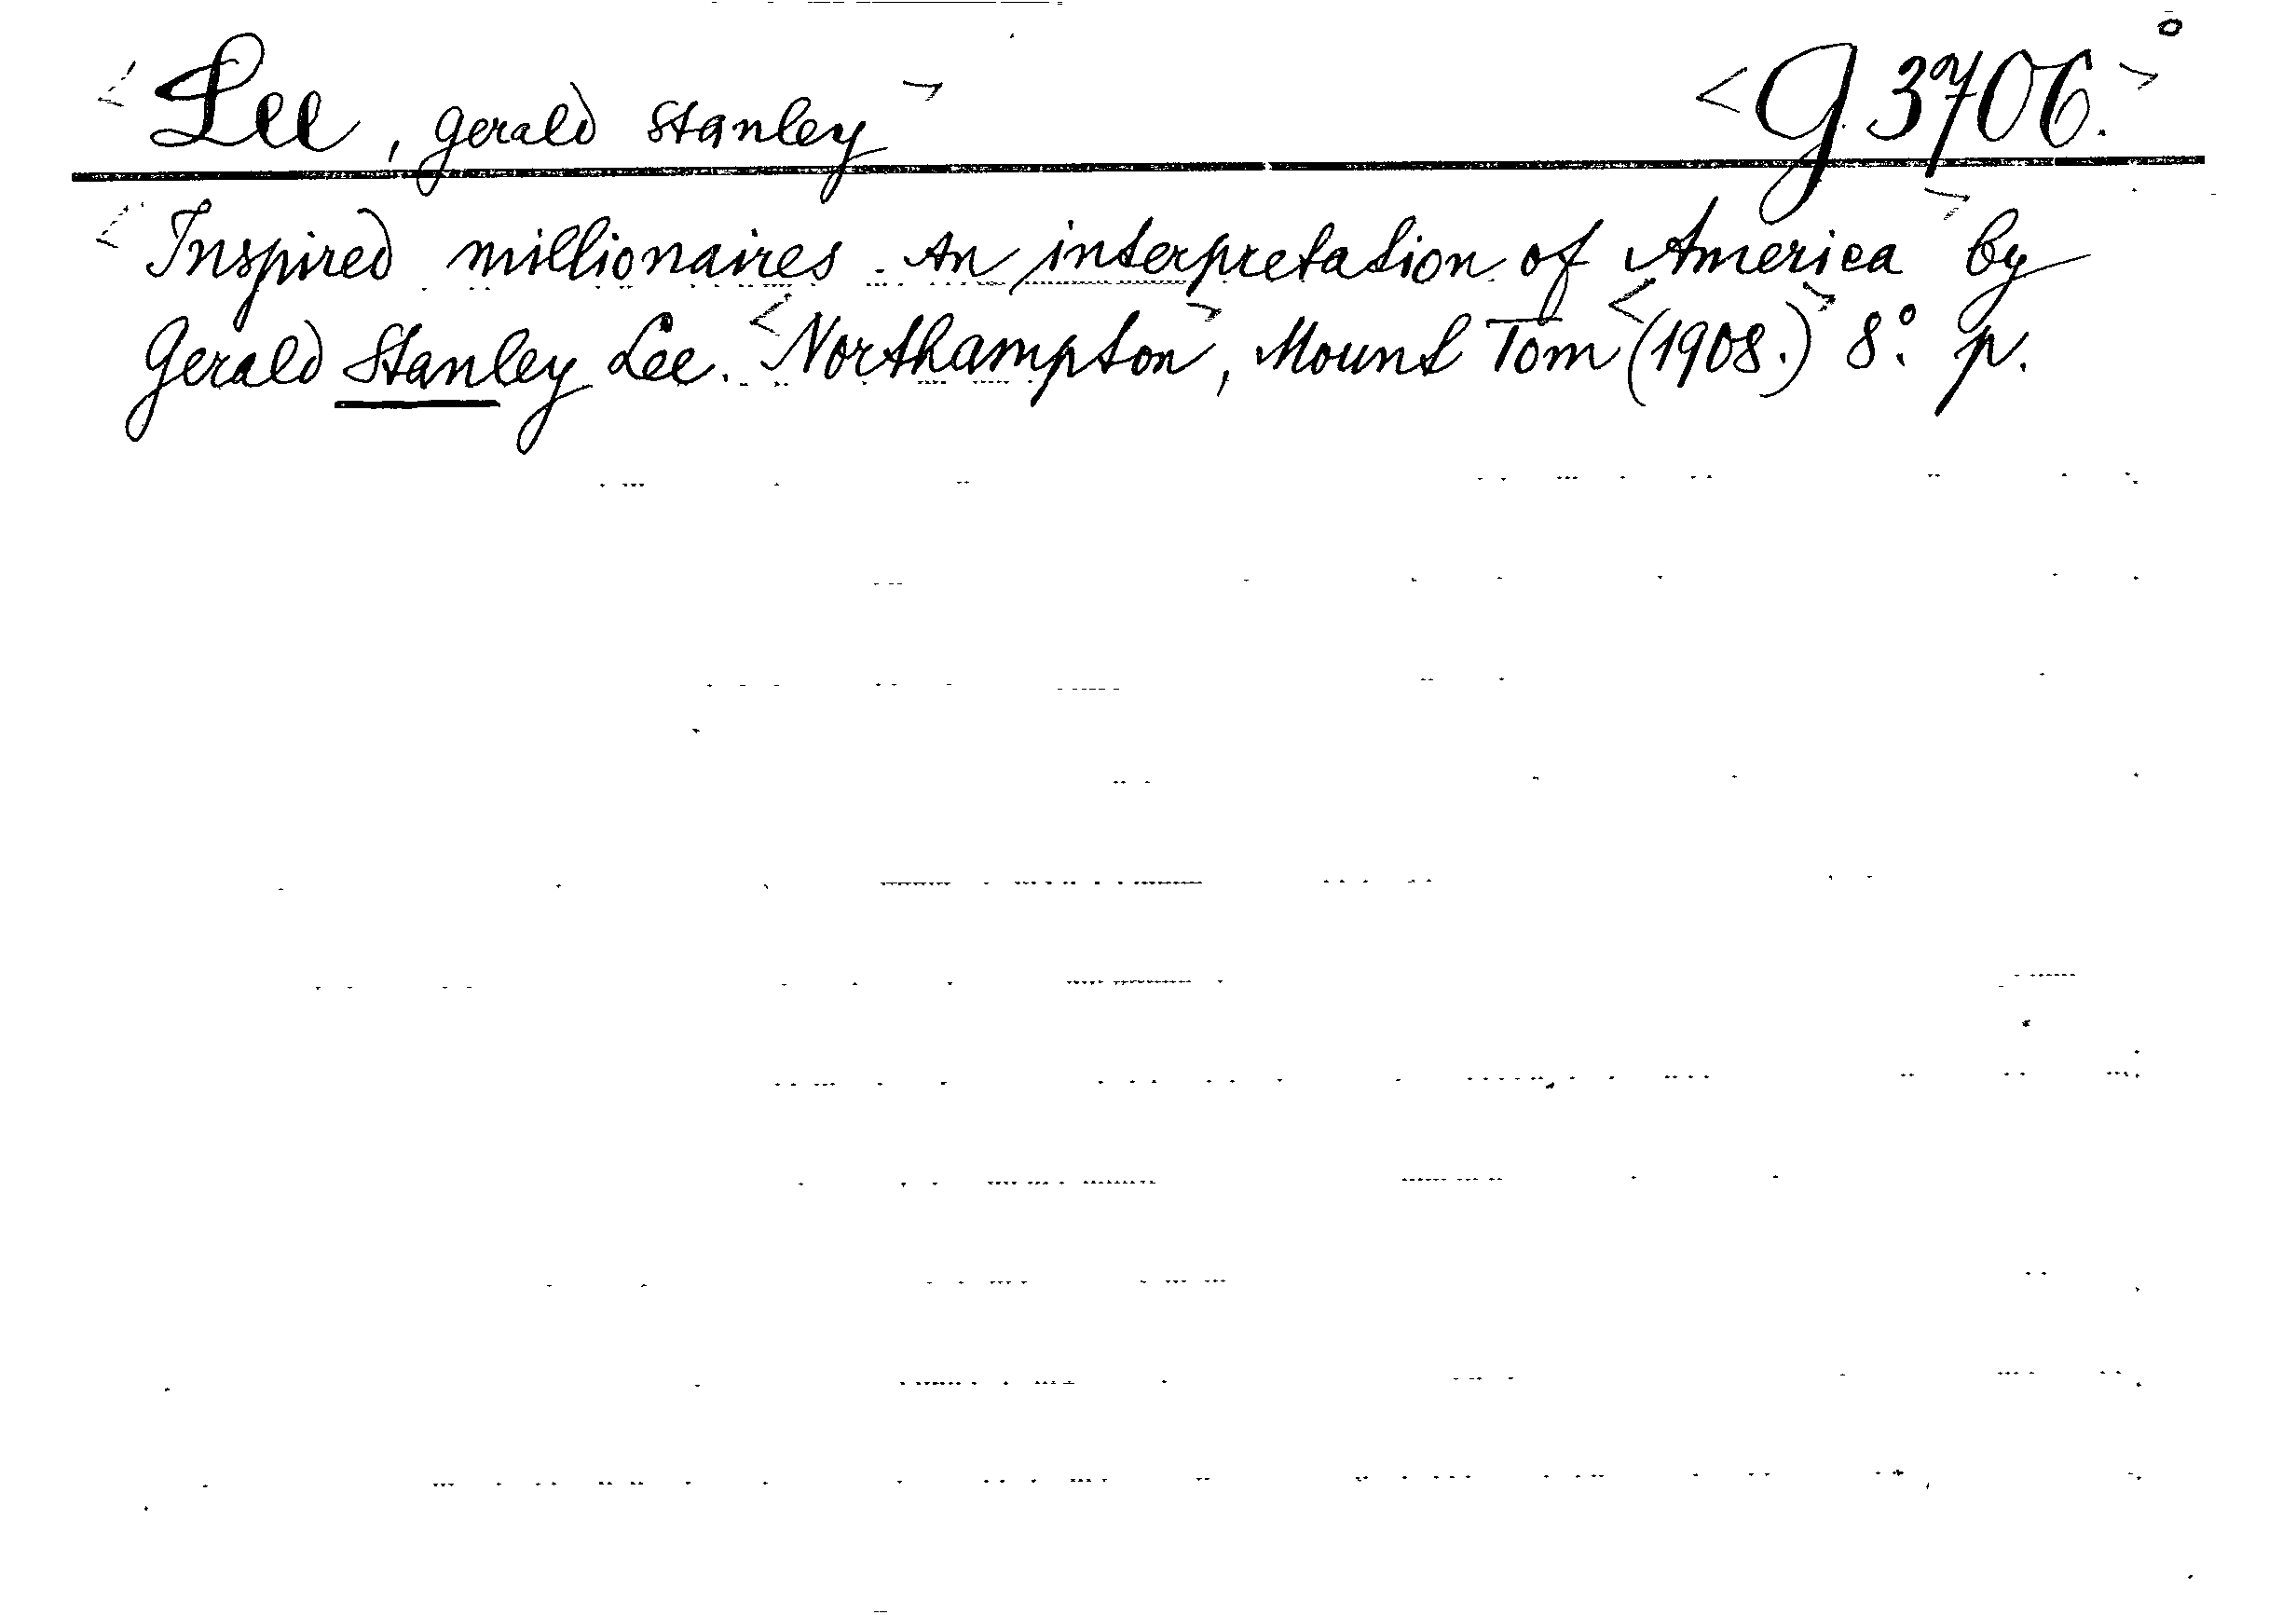 <Lee, Gerald Stanley> <G 3706.>
<Inspired millionaires. An interpretation of America> by
Gerald Stanley Lee. <Northampton>, Mount Tom <(1908.)> 8°. p.